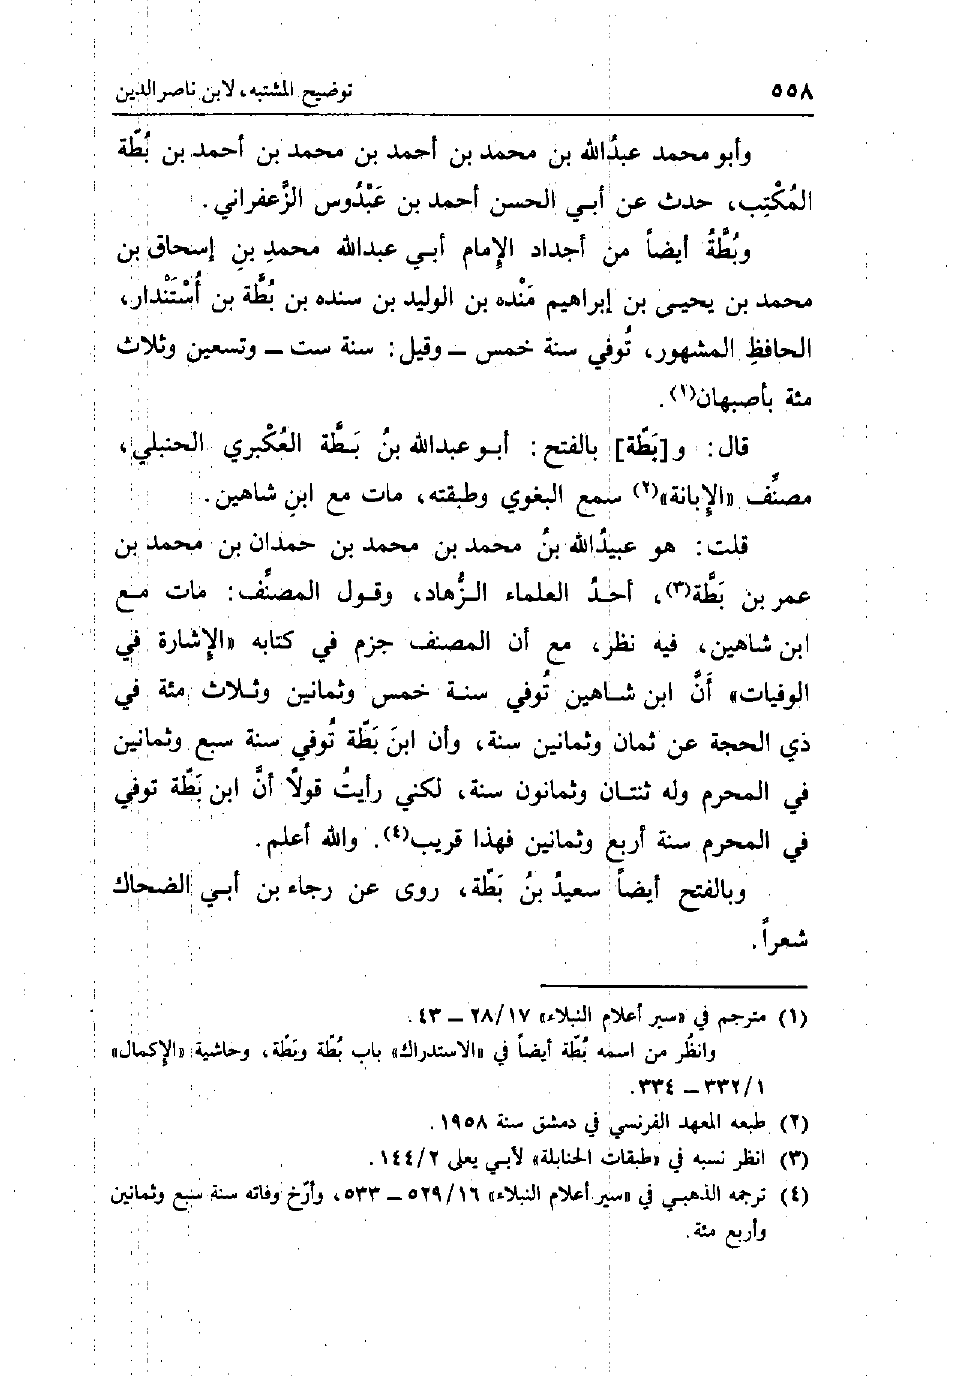 ٥٥٨
توضيح المشتبه، لابن ناصر الدين
وأبو محمد عبدُالله بن محمد بن أحمد بن محمد بن أحمد بن بُطَّة
المُكْتِب، حدث عن أبي الحسن أحمد بن عَبْدُوس الزَّعفراني.
وبُطَّةُ أيضاً من أجداد الإمام أبي عبدالله محمدِ بنِ إسحاق بن
محمد بن يحيى بن إبراهيم مَنْده بن الوليد بن سنده بن بُطَّة بن أُسْتَنْدار،
الحافظِ المشهور، تُوفي سنة خمس ــ وقيل: سنة ست ــ وتسعين وثلاث
مئة بأصبهان(١).
قال: و[بَطّة] بالفتح: أبو عبدالله بنُ بَطَّة العُكْبري الحنبلي،
مصنِّف «الإِبانة»(٢) سمع البغوي وطبقته، مات مع ابنِ شاهين.
قلت: هو عبيدُالله بنُ محمد بن محمد بن حمدان بن محمد بن
عمر بن بَطَّة(٣)، أحدُ العلماء الزُّهاد، وقول المصنِّف: مات مع
ابن شاهين، فيه نظر، مع أن المصنف جزم في كتابه «الإشارة في
الوفيات» أَنَّ ابن شاهين تُوفي سنة خمس وثمانين وثلاث مئة في
ذي الحجة عن ثمان وثمانين سنة، وأن ابنَ بَطّة تُوفي سنة سبع وثمانين
في المحرم وله ثنتان وثمانون سنة، لكني رأيتُ قولاً أنَّ ابن بَطّة توفي
في المحرم سنة أربع وثمانين فهذا قريب(٤). والله أعلم.
وبالفتح أيضاً سعيدُ بنُ بَطّة، روى عن رجاء بن أبي الضحاك
شعراً.
(١) مترجم في «سير أعلام النبلاء» ٢٨/١٧ ــ ٤٣.
وانظُر من اسمه بُطّة أيضاً في «الاستدراك» باب بُطّة وبَطّة، وحاشية «الإكمال»
٣٣٢/١ ــ ٣٣٤.
(٢) طبعه المعهد الفرنسي في دمشق سنة ١٩٥٨.
(٣) انظر نسبه في «طبقات الحنابلة» لأبي يعلى ١٤٤/٢.
(٤) ترجمه الذهبي في «سير أعلام النبلاء» ٥٢٩/١٦ ــ ٥٣٣، وأرّخ وفاته سنة سبع وثمانين
وأربع مئة.